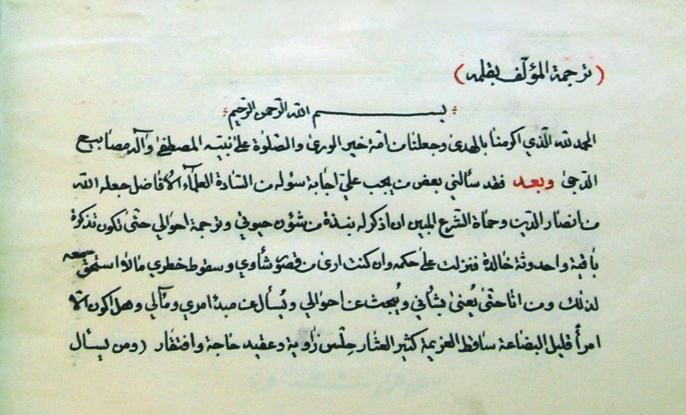 (ترجمة المؤلف بقلمه)
بسم الله الرحمن الرحيم
الحمد لله الذي اكرمنا بالهدى وجعلنا من امة خير الورى والصلوة على نبيه المصطفى وآله مصابيح
الدجى وبعد فقد سألني بعض من يجب علي اجابة سوله من السادة العلماء الافاضل جعله الله
من انصار الدين وحماة الشرع المبين ان اذكر له نبذة من شؤن حيوتي وترجمة احوالي حتى تكون تذكرة
باقية واحدوثة خالدة فنزلت على حكمه وان كنت ارى من قصور شأوي وسقوط خطري مالا استحق معه
لذلك ومن انا حتى يُعنى بشأني ويُبحث عن احوالي ويُسأل عن مبدء امري ومآلي وهل اكون الا
امرأ قليل البضاعة ساقط العزيمة كثير العثار حِلْس زاوية وعقيد حاجة وافتقار (ومن يسأل